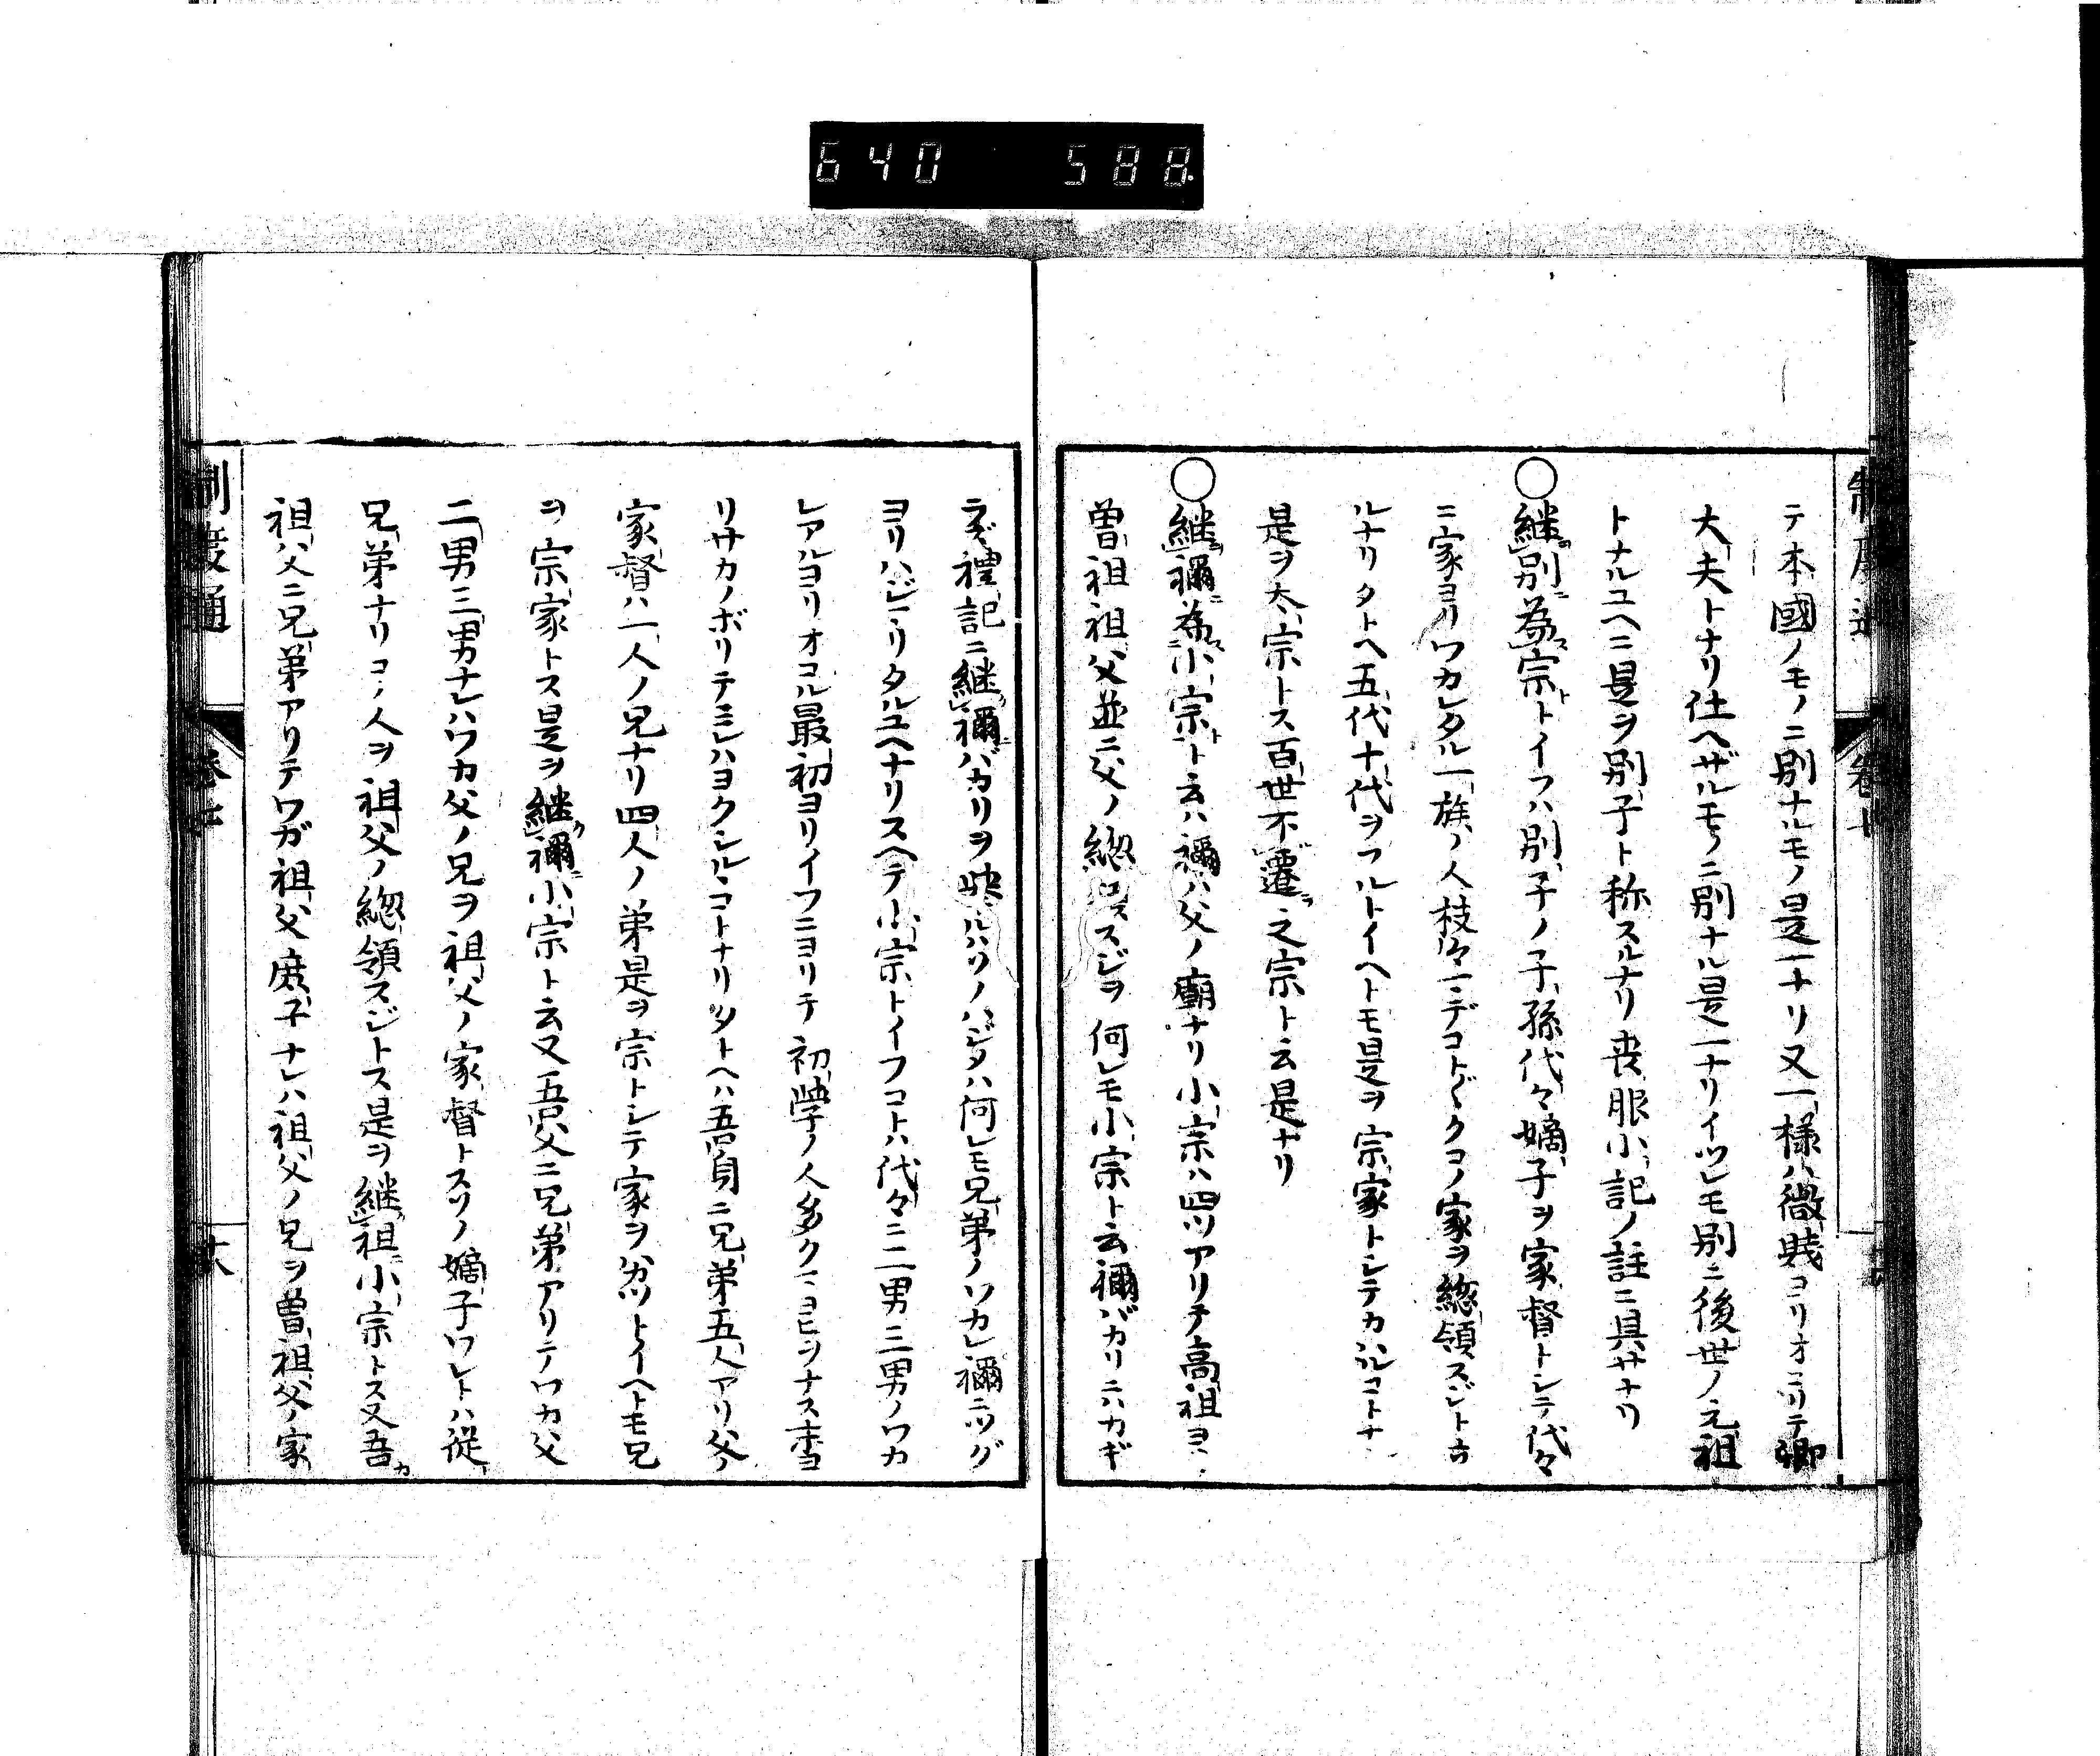 640 588
テ本國ノモノニ別ナルモノ是一ナリ又一様ハ微賎ヨリオコリテ卿
大夫トナリ仕ヘザルモノニ別ナル是一ナリイヅレモ別ニ後世ノ元祖
トナルユヘニ是ヲ別子ト称スルナリ喪服小記ノ註ニ具サナリ
○継別為宗トイフハ別子ノ子孫代々嫡子ヲ家督トシテ代々
ニ家ヨリワカレタル一族ノ人枝々マデコトゴトクコノ家ヲ総領スジトウ
ルナリタトヘ五代十代ヲフルトイヘトモ是ヲ宗家トシテカハルコトナ
是ヲ大宗トス百世不遷之宗ト云是ナリ
○継禰為小宗ト云ハ禰ハ父ノ廟ナリ小宗ハ四ツアリテ高祖ヨ
曽祖祖父並ニ父ノ総スジヲ何レモ小宗ト云禰バカリニハカギ
ラズ禮記ニ継禰バカリヲ挙ルハソノハジメハ何レモ兄弟ノワカレ禰ニツグ
ヨリハジマリタルユヘナリスヘテ小宗トイフコトハ代々ニ二男三男ノワカ
レアルヨリオコル最初ヨリイフニヨリテ初學ノ人多クマヨヒヲナス末ヨ
リサカノボリテミレハヨクシルヽコトナリタトヘハ吾身ニ兄弟五人アリ父ノ
家督ハ一人ノ兄ナリ四人ノ弟是ヲ宗トシテ家ヲワカツトイヘトモ兄
ヲ宗家トス是ヲ継禰小宗ト云又吾父ニ兄弟アリテワカ父
二男三男ナレハワカ父ノ兄ヲ祖父ノ家督トスソノ嫡子ワレトハ従
兄弟ナリコノ人ヲ祖父ノ総領スジトス是ヲ継祖小宗トス又吾カ
祖父ニ兄弟アリテワガ祖父庶子ナレハ祖父ノ兄ヲ曽祖父ノ家
制度通
巻十
十八